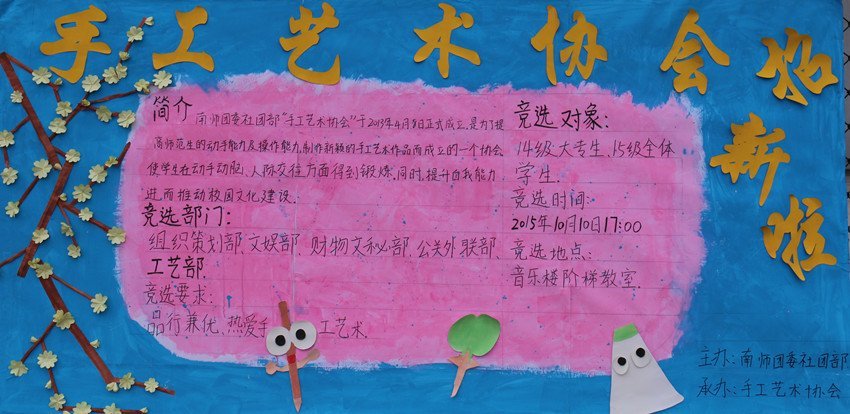 手工艺术协会招新啦
简介 南师团委社团部"手工艺术协会"于2013年4月8日正式成立.是为了提
高师范生的动手能力及操作能力,制作新颖的手工艺术作品而成立的一个协会.
使学生在动手动脑、人际交往方面得到锻炼.同时,提升自我能力
进而推动校园文化建设.
竞选部门:
组织策划部、文娱部、财物文秘部、公关外联部、
工艺部.
竞选要求:
品行兼优、热爱手工艺术.
竞选对象:
14级大专生、15级全体
学生.
竞选时间:
2015年10月10日17:00
竞选地点:
音乐楼阶梯教室.
主办:南师团委社团部
承办:手工艺术协会